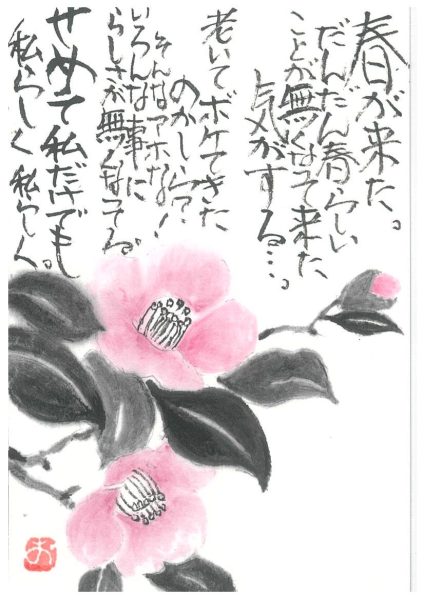 春が来た。
だんだん春らしい
ことが無くなって来た
気がする…。
老いてボケてきた
のかしら??
そんなアホな!
いろんな事に
らしさが無くなってる。
せめて私だけでも
私らしく私らしく。